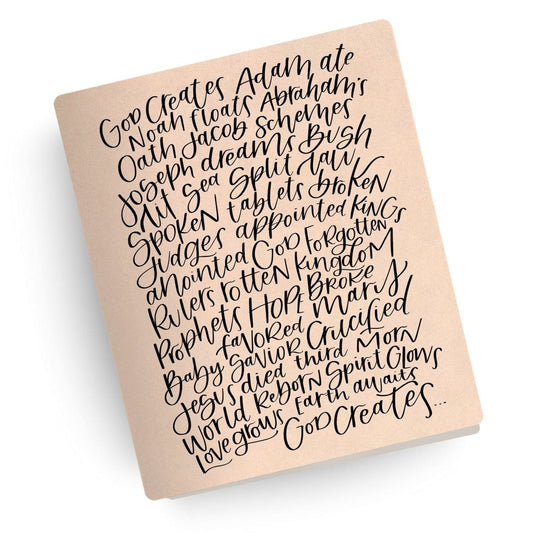 GOD CREATES ADAM ate
Noah floats Abraham's
Oath Jacob Schemes
Joseph dreams Bush
Lit Sea Split Law
Spoken tablets broken
Judges appointed Kings
anointed God Forgotten
Rulers rotten Kingdom
Prophets HOPE Broke
favored Mary
Baby Savior Crucified
Jesus died third Morn
World Reborn Spirit Glows
Love grows Earth awaits
God Creates...